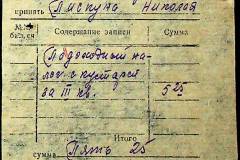 принять Пискуна Николая
№№ бан. ся Содержание записи Сумма
Подоходный на-
лог с кустаря
за III кв. 5 25
Итого
сумма Пять 25